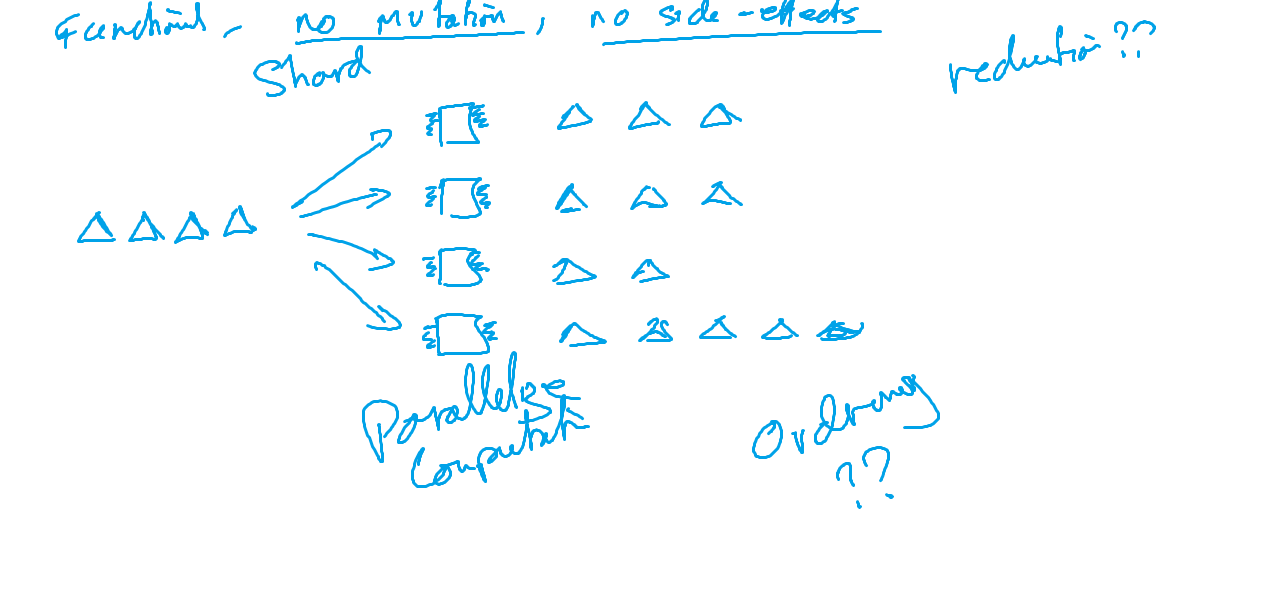 Functional - no mutation, no side-effects
Shard
reduction??
Parallelize
Computati
Ordering
??